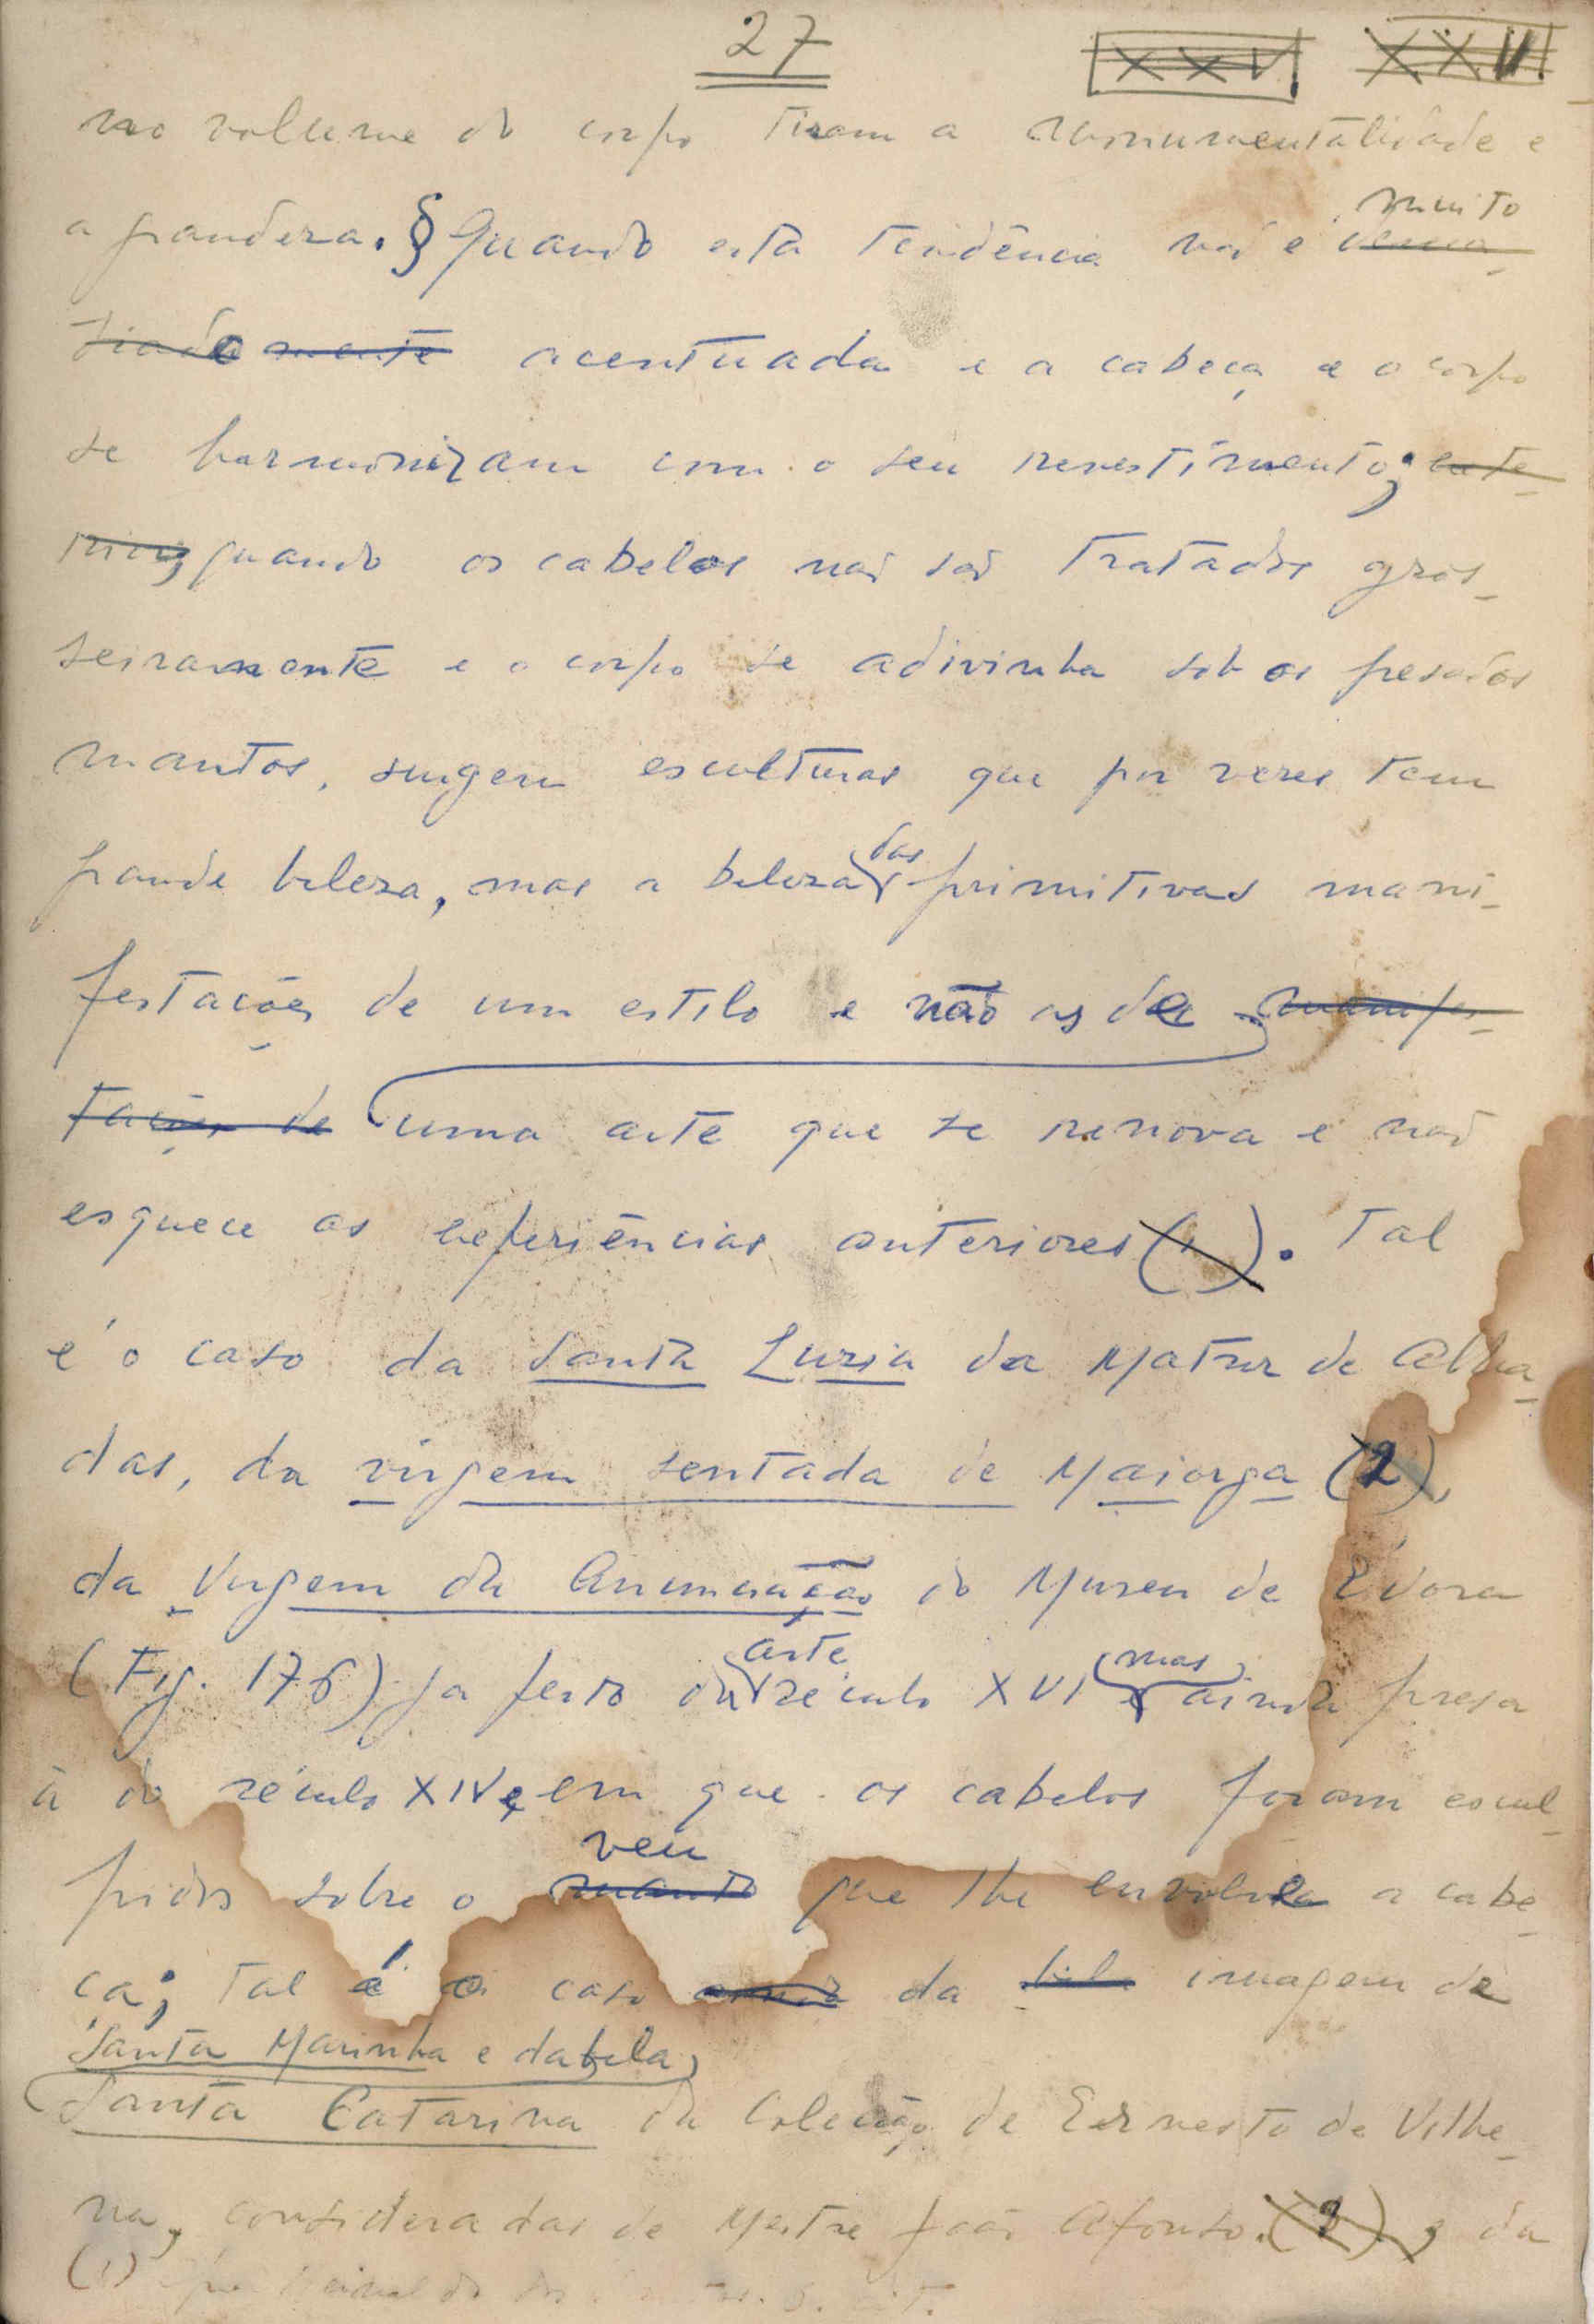 27 XXVI XXVII
no volume do corpo tiram a monumentalidade e
muito
a grandeza. § Quando esta tendência não é dema-
siadamente acentuada e a cabeça e o corpo
se harmonizam com o seu revestimento;
quando os cabelos não são tratados gros-
seiramente e o corpo se adivinha sob os pesados
mantos, surgem esculturas que por vezes tem
das
grande beleza, mas a beleza primitivas mani-
festações de um estilo e não as de manifes-
tações de uma arte que se renova e não
esquece as experiências anteriores (1). Tal
é o caso da Santa Luzia da Matriz de Alha-
das, da virgem sentada de Maiorga (2),
da Virgem da Anunciação do Museu de Évora
arte mas
(Fig. 176) ja perto da século XVI e ainda presa
à do século XIV, em que os cabelos foram escul-
veu
pidos sobre o manto que lhe envolve a cabe-
ça; tal é o caso da bela imagem de
Santa Marinha e da bela
Santa Catarina da Colecção de Ernesto de Vilhe-
na, consideradas de Mestre João Afonso. (3) e da
(1)